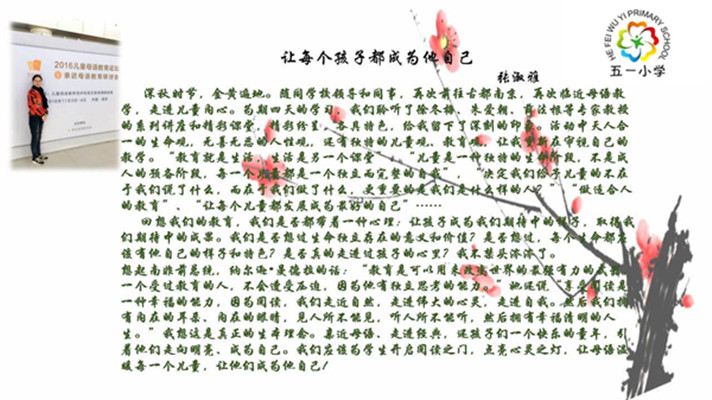 2016儿童母语教育论坛
亲近母语教育研讨会
HE FEI WU YI PRIMARY SCHOOL
五一小学
让每个孩子都成为他自己
张淑雅
深秋时节，金黄遍地。随同学校领导和同事，再次前往古都南京，再次临近母语教
学，走进儿童内心。为期四天的学习，我们聆听了徐冬梅、朱爱朝、 等专家教授
的系列讲座和精彩课堂，精彩纷呈，各具特色，给我留下了深刻的印象。活动中天人合
一的生命观，无善无恶的人性观，还有独特的儿童观、教育观，让我重新在审视自己的
教学。“教育就是生活，生活是另一个课堂”、“儿童是一种独特的生命阶段，不是成
人的预备阶段，每一个儿童都是一个独立而完整的自我”、“决定我们给予儿童的不在
于我们说了什么，而在于我们做了什么，更重要的是我们是什么样的人？”“做适合人
的教育”、“让每个儿童都发展成为最好的自己”……
回想我们的教育，我们是否都带着一种心理：让孩子成为我们期待中的样子，取得我
们期待中的成果。我们是否想过生命独立存在的意义和价值？是否想过，每个生命都应
该有他自己的样子和特色？是否真的走进过孩子的心里？我不禁头涔涔了。
想起南非前总统，纳尔逊·曼德拉的话：“教育是可以用来改变世界的最强有力的武器，
一个受过教育的人，不会遭受压迫，因为他有独立思考的能力。”她还说，“享受阅读是
一种幸福的能力，因为阅读，我们走近自然，走进伟大的心灵，走进自我。然后我们拥
有内在的耳朵、内在的眼睛，见人所不能见，听人所不能听，然后拥有幸福清明的人
生。”我想这是真正的生命理念。亲近母语，走进经典，还孩子们一个快乐的童年，引
着他们走向明亮、成为自己。我们应该为学生开启阅读之门，点亮心灵之灯，让母语温
暖每一个儿童，让他们成为他自己！